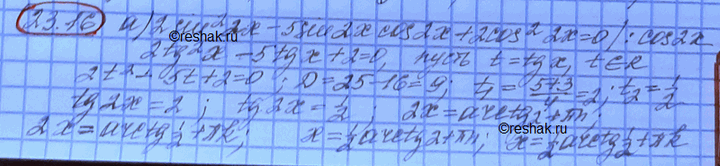 23.16 а) 2sin²2x - 5sin2x cos2x + 2cos²2x = 0 /: cos2x
2tg²x - 5tgx + 2 = 0, пусть t = tgx, t∈R
2t² - 5t + 2 = 0; D = 25 - 16 = 9; t₁ = (5+3)/4 = 2; t₂ = 1/2
tg2x = 2; tg2x = 1/2; 2x = arctg2 + πn;
2x = arctg 1/2 + πk; x = 1/2 arctg2 + πn; x = 1/2 arctg 1/2 + πk